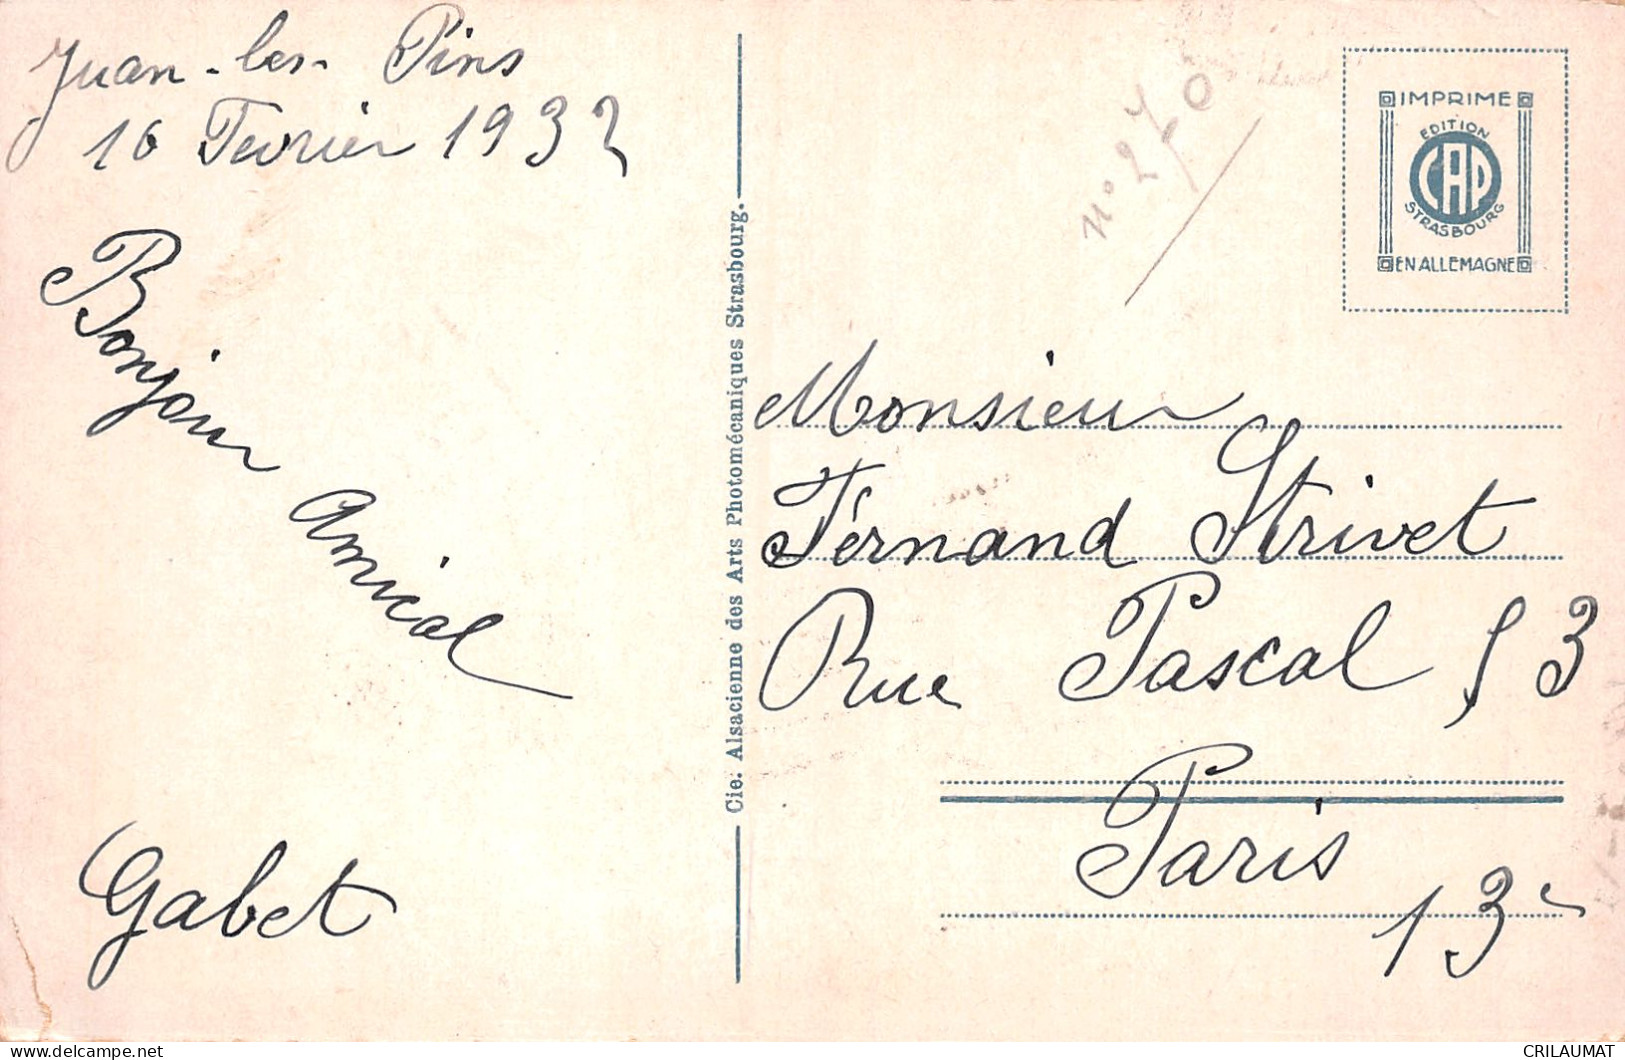 Juan-les-Pins
16 Fevrier 1932
Bonjour Amical
Gabet
Cie. Alsacienne des Arts Photomécaniques Strasbourg.
n° 270
IMPRIME
EDITION
CAP
STRASBOURG
EN ALLEMAGNE
Monsieur
Fernand Strivet
Rue Pascal 53
Paris
13e
CRILAUMAT